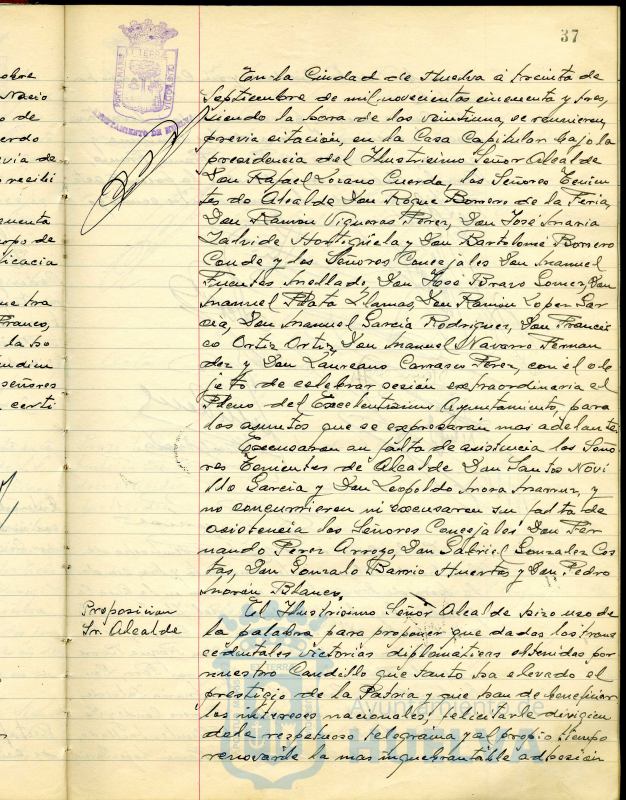 37
En la Ciudad de Huelva á treinta de
Septiembre de mil novecientos cincuenta y tres,
siendo la hora de las veintiuna, se reunieron,
previa citación, en la Casa Capitular bajo la
presidencia del Ilustrisimo Señor Alcalde
Don Rafael Lozano Cuerda, los Señores Tenien
tes de Alcalde Don Roque Borrero de la Feria,
Don Ramón Vigueras Perez, Don José Maria
Zalvide Hontigüela y Don Bartolomé Borrero
Conde y los Señores Concejales Don Manuel
Fuentes Mellado, Don José Bravo Gomez, Don
Manuel Plata Llamas, Don Ramón Lopez Gar
cia, Don Manuel Garcia Rodriguez, Don Francis
co Ortiz Ortiz, Don Manuel Navarro Fernan
dez y Don Laureano Carrasco Perez, con el ob
jeto de celebrar sesión extraordinaria el
Pleno del Excelentisimo Ayuntamiento, para
los asuntos que se expresaran mas adelante.
Excusaron su falta de asistencia los Seño
res Tenientes de Alcalde Don Santos Novi
llo Garcia y Don Leopoldo Mora y
no concurrieron ni excusaron su falta de
asistencia los Señores Concejales Don Fer
nando Perez Arroyo, Don Gabriel Gonzalez Cos
tas, Don Gonzalo Barrio Huertas y Don Pedro
Morón Blanco.
Proposicion
Sr. Alcalde
El Ilustrisimo Señor Alcalde hizo uso de
la palabra para proponer que dadas las trans
cedentales victorias diplomaticas obtenidas por
nuestro Caudillo que tanto ha elevado el
prestigio de la Patria y que han de beneficiar
los intereses nacionales, felicitarle dirigien
dole respetuoso telegrama y al propio tiempo
renovarle la mas inquebrantable adhesión
Ayuntamiento de
HUELVA